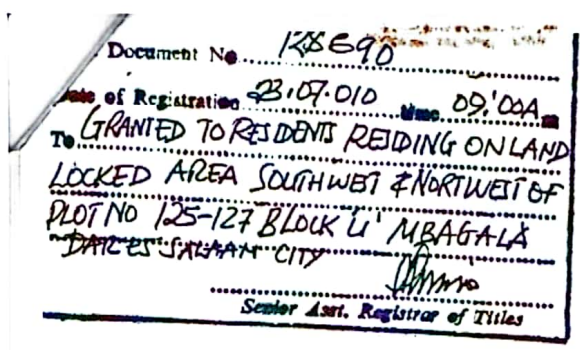 Document No 128690
Date of Registration 23.07.010 time 09:00A m
To GRANTED TO RESIDENTS RESIDING ON LAND
LOCKED AREA SOUTHWEST & NORTWEST OF
PLOT NO 125-127 BLOCK 'U' MBAGALA
DAR ES SALAAM CITY
Senior Asst. Registrar of Titles